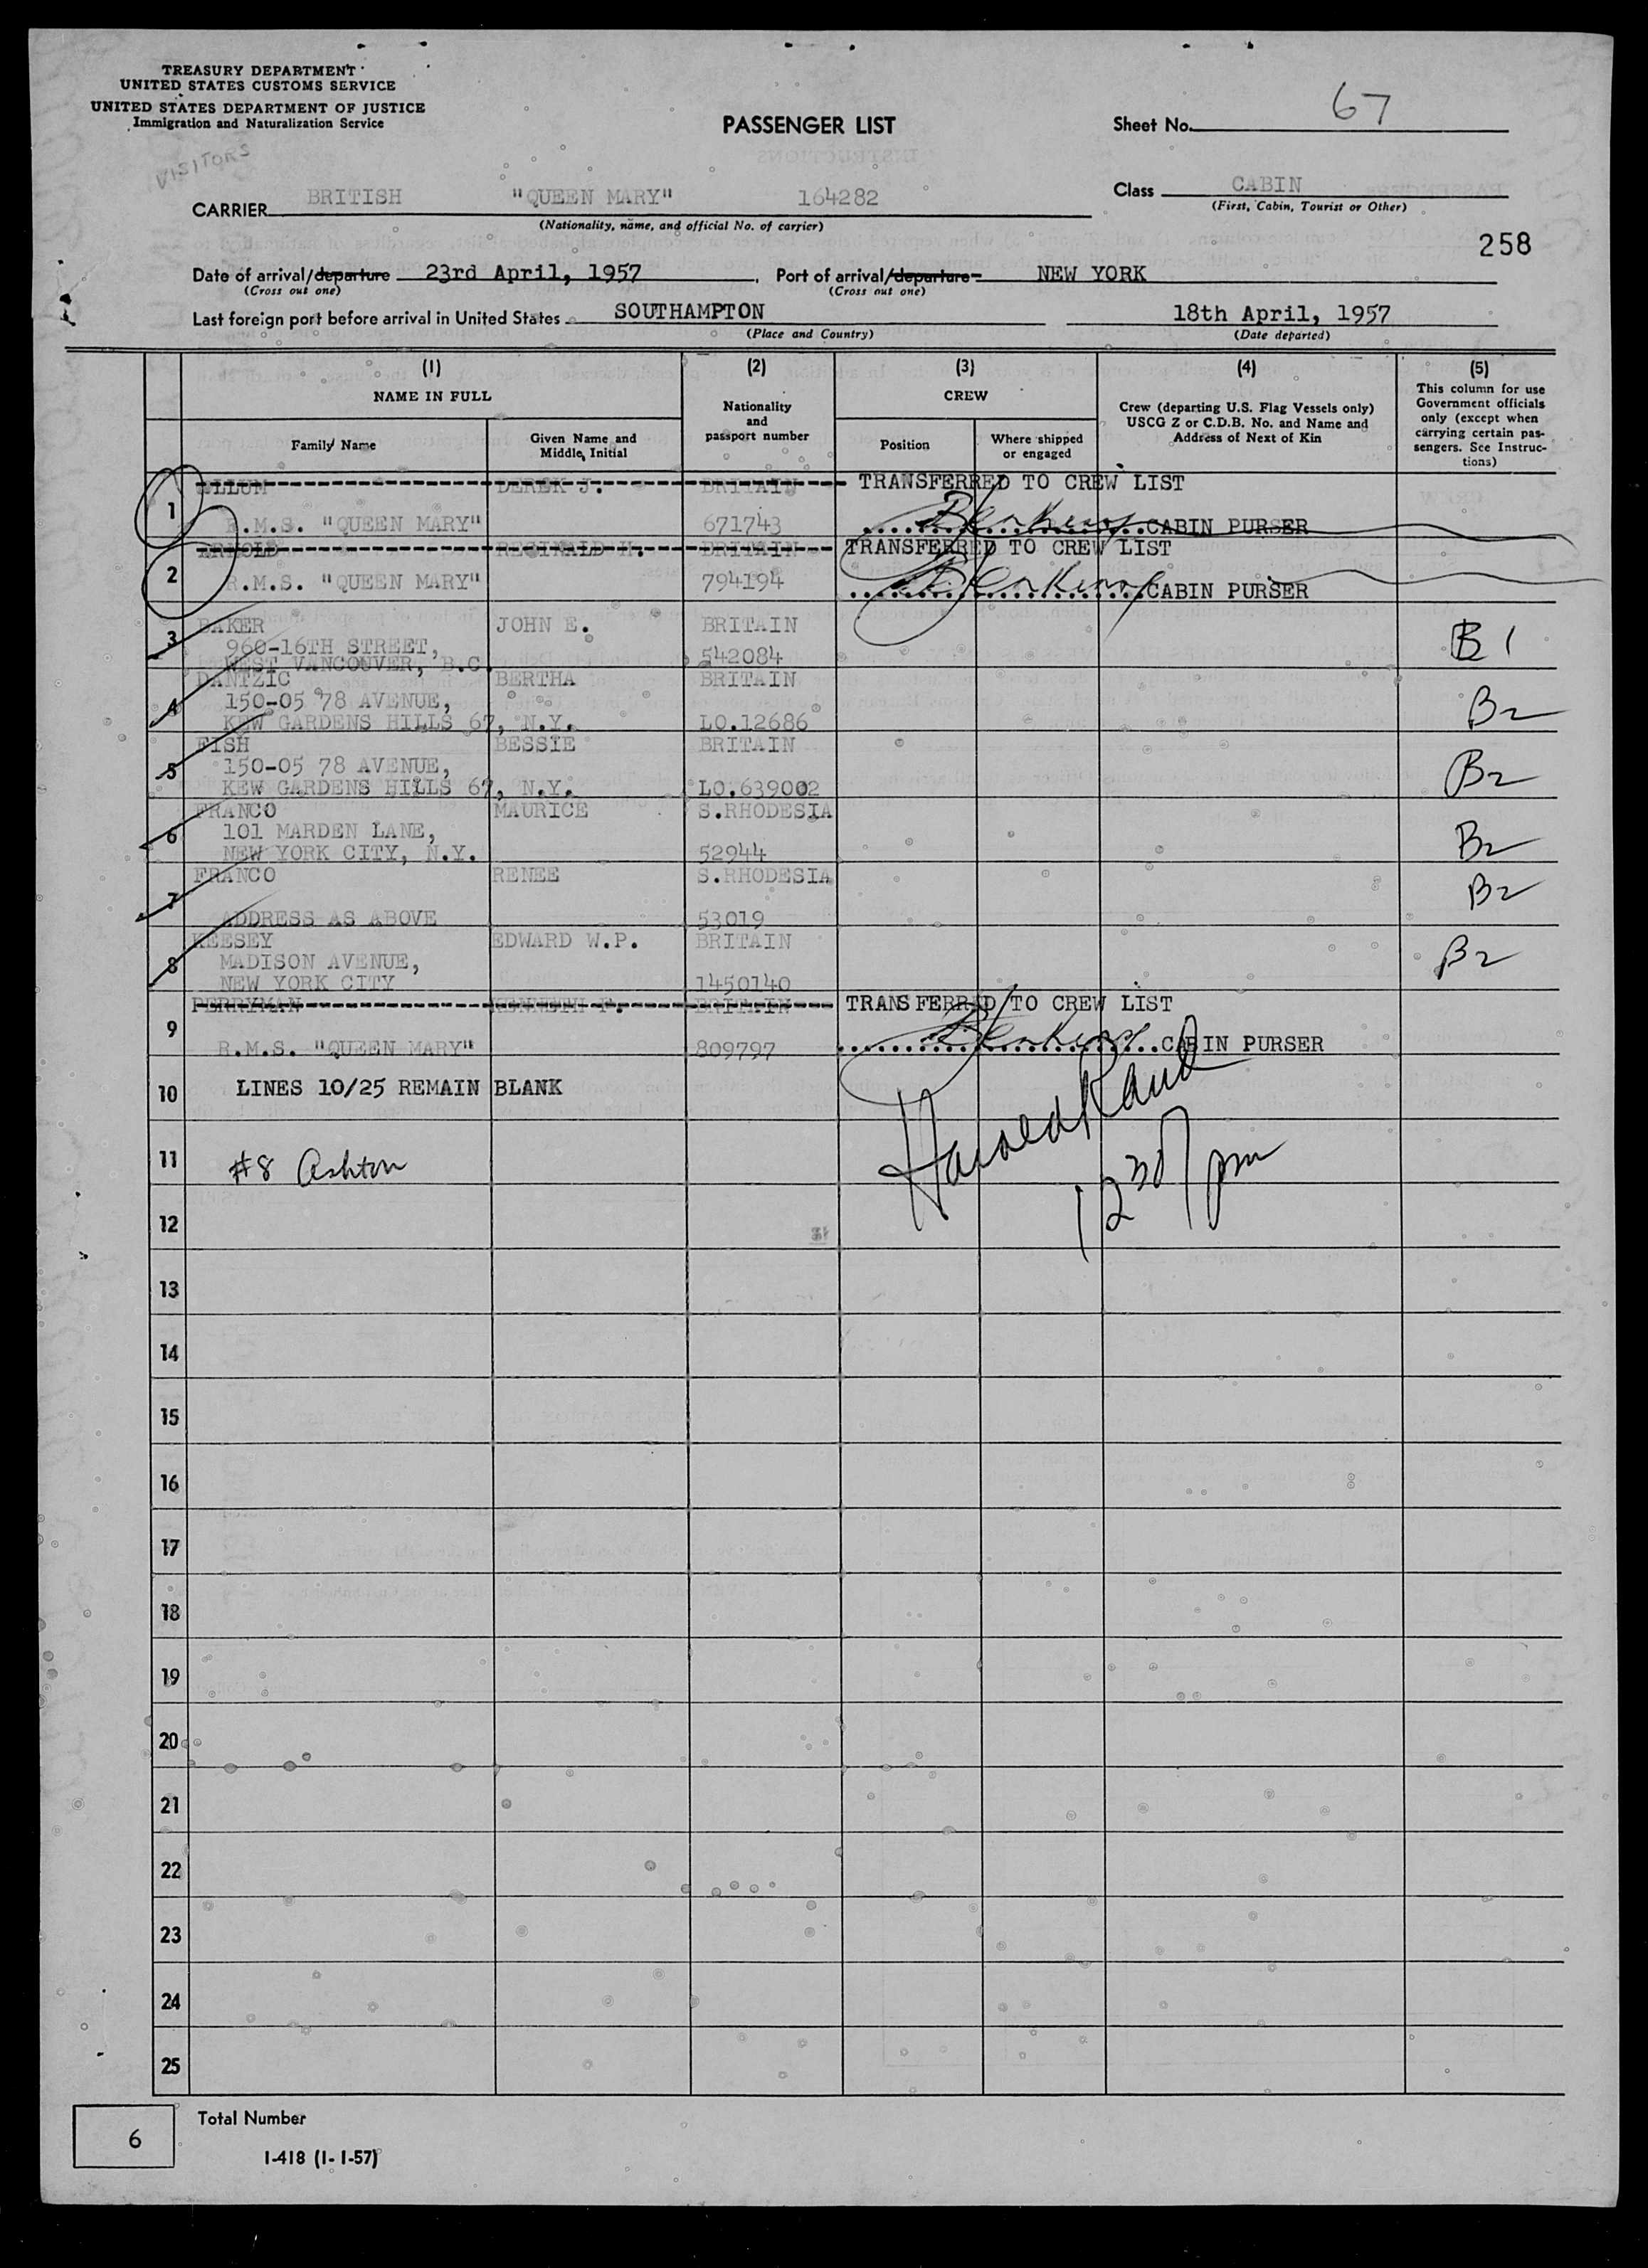 TREASURY DEPARTMENT
UNITED STATES CUSTOMS SERVICE
UNITED STATES DEPARTMENT OF JUSTICE
Immigration and Naturalization Service
VISITORS
PASSENGER LIST
Sheet No. 67
CARRIER BRITISH "QUEEN MARY" 164282
(Nationality, name, and official No. of carrier)
Class CABIN
(First, Cabin, Tourist or Other)
258
Date of arrival/departure 23rd April, 1957. Port of arrival/departure NEW YORK
(Cross out one) (Cross out one)
Last foreign port before arrival in United States SOUTHAMPTON 18th April, 1957
(Place and Country) (Date departed)
(1) (2) (3) (4) (5)
NAME IN FULL
Family Name
Given Name and Middle Initial
Nationality and passport number
CREW
Position
Where shipped or engaged
Crew (departing U.S. Flag Vessels only)
USCG Z or C.D.B. No. and Name and
Address of Next of Kin
This column for use
Government officials
only (except when
carrying certain pas-
sengers. See Instruc-
tions)
1 ALLUM DEREK J. BRITAIN TRANSFERRED TO CREW LIST
R.M.S. "QUEEN MARY" 671743 CABIN PURSER
2 ARNOLD REGINALD BRITAIN TRANSFERRED TO CREW LIST
R.M.S. "QUEEN MARY" 794194 CABIN PURSER
3 BAKER JOHN E. BRITAIN B1
960-16TH STREET,
WEST VANCOUVER, B.C. 542084
4 DANTZIC BERTHA BRITAIN B2
150-05 78 AVENUE,
KEW GARDENS HILLS 67, N.Y. LO.12686
5 FISH BESSIE BRITAIN B2
150-05 78 AVENUE,
KEW GARDENS HILLS 67, N.Y. LO.639002
6 FRANCO MAURICE S.RHODESIA B2
101 MARDEN LANE,
NEW YORK CITY, N.Y. 52944
7 FRANCO RENEE S.RHODESIA B2
ADDRESS AS ABOVE 53019
8 KEESEY EDWARD W.P. BRITAIN B2
MADISON AVENUE,
NEW YORK CITY 1450140
9 PERRYMAN KENNETH F. BRITAIN TRANSFERRED TO CREW LIST
R.M.S. "QUEEN MARY" 809797 CABIN PURSER
10 LINES 10/25 REMAIN BLANK
Harold Rand
11 #8 Ashton
12 30 pm
12
13
14
15
16
17
18
19
20
21
22
23
24
25
6 Total Number
I-418 (1-1-57)